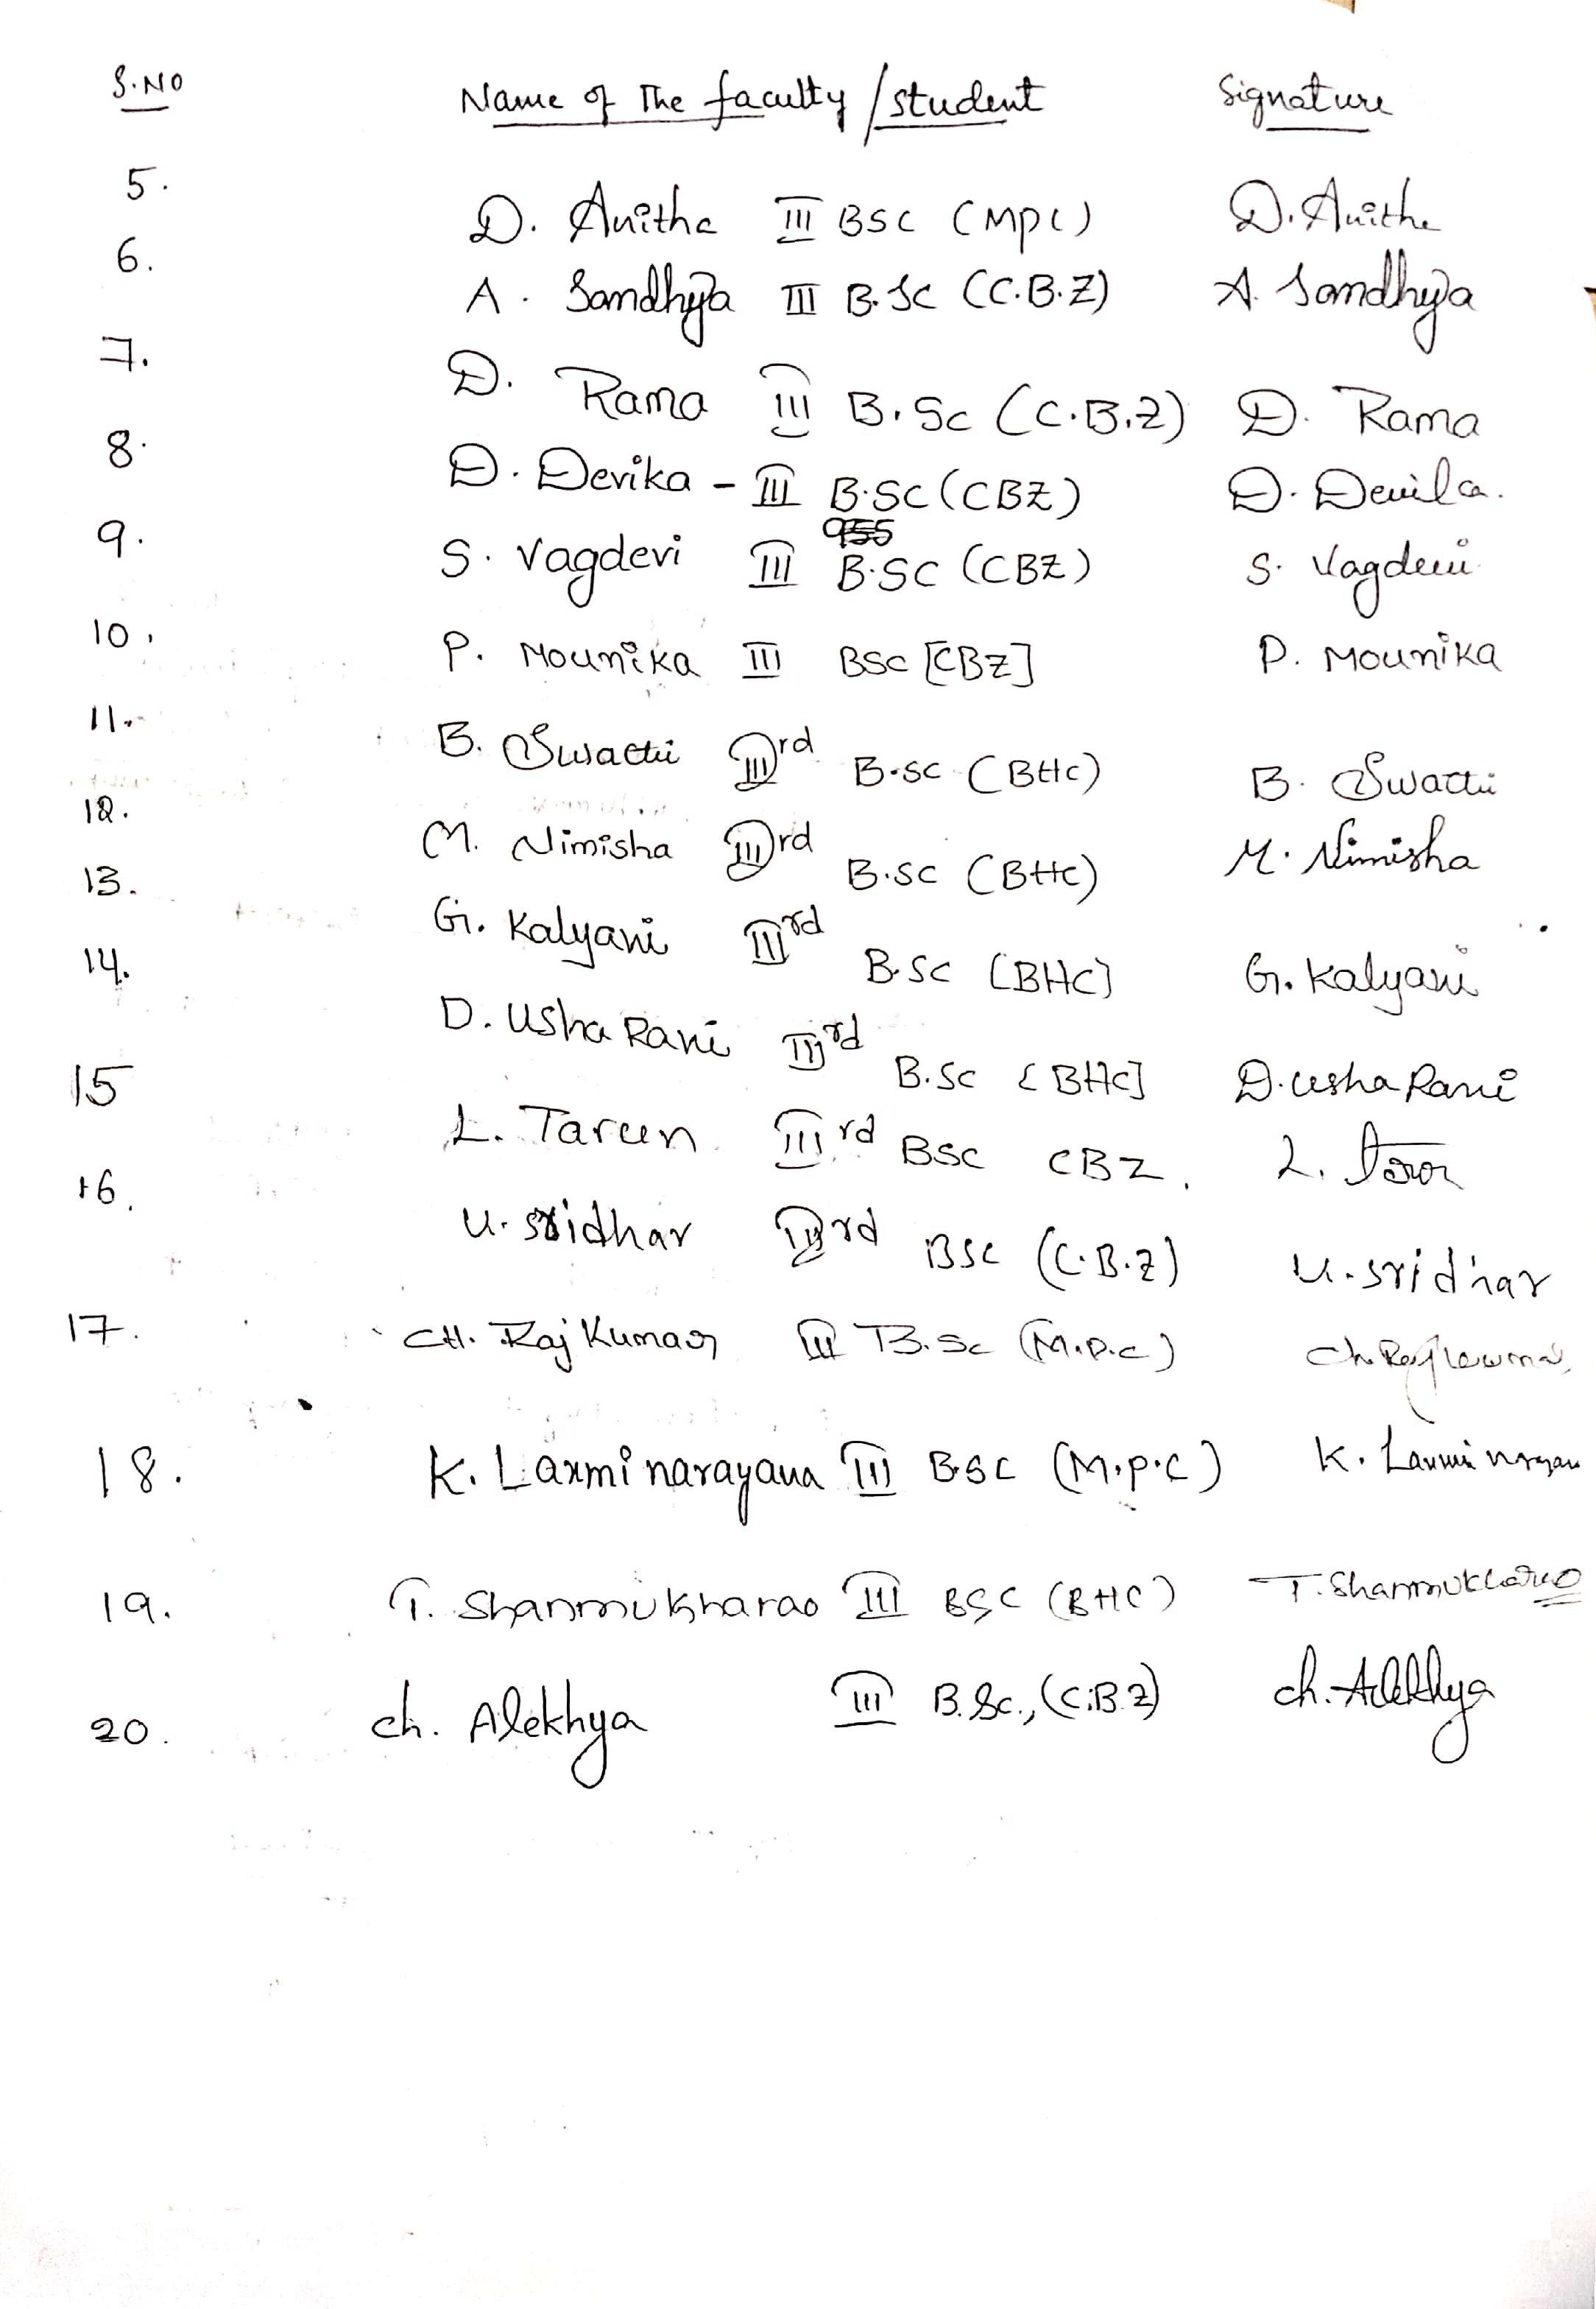 S.NO Name of The faculty / student Signature
5. D. Anitha III BSC (MPC) D. Anitha
6. A. Sandhya III B.Sc (C.B.Z) A. Sandhya
7. D. Rama III B.Sc (C.B.Z) D. Rama
8. D. Devika - III B.SC (CBZ) D. Devika.
9. S. Vagdevi III B.SC (CBZ) S. Vagdevi
10. P. Mounika III BSC [CBZ] P. Mounika
11. B. Swathi IIIrd B.SC (BHC) B. Swathi
12. M. Nimisha IIIrd B.SC (BHC) M. Nimisha
13. G. Kalyani IIIrd B.SC [BHC] G. Kalyani
14. D. Usha Rani IIIrd B.Sc [BHC] D. Usha Rani
15 L. Tarun IIIrd BSC CBZ. L.
16. U. Sridhar IIIrd BSC (C.B.Z) U. Sridhar
17. CH. Raj Kumar III B.Sc (M.P.C) Ch. Raj Kumar
18. K. Laxmi narayana III BSC (M.P.C) K. Laxmi narayan
19. T. Shanmukharao III BSC (BHC) T. Shanmukharao
20. ch. Alekhya III B.Sc., (C.B.Z) ch. Alekhya